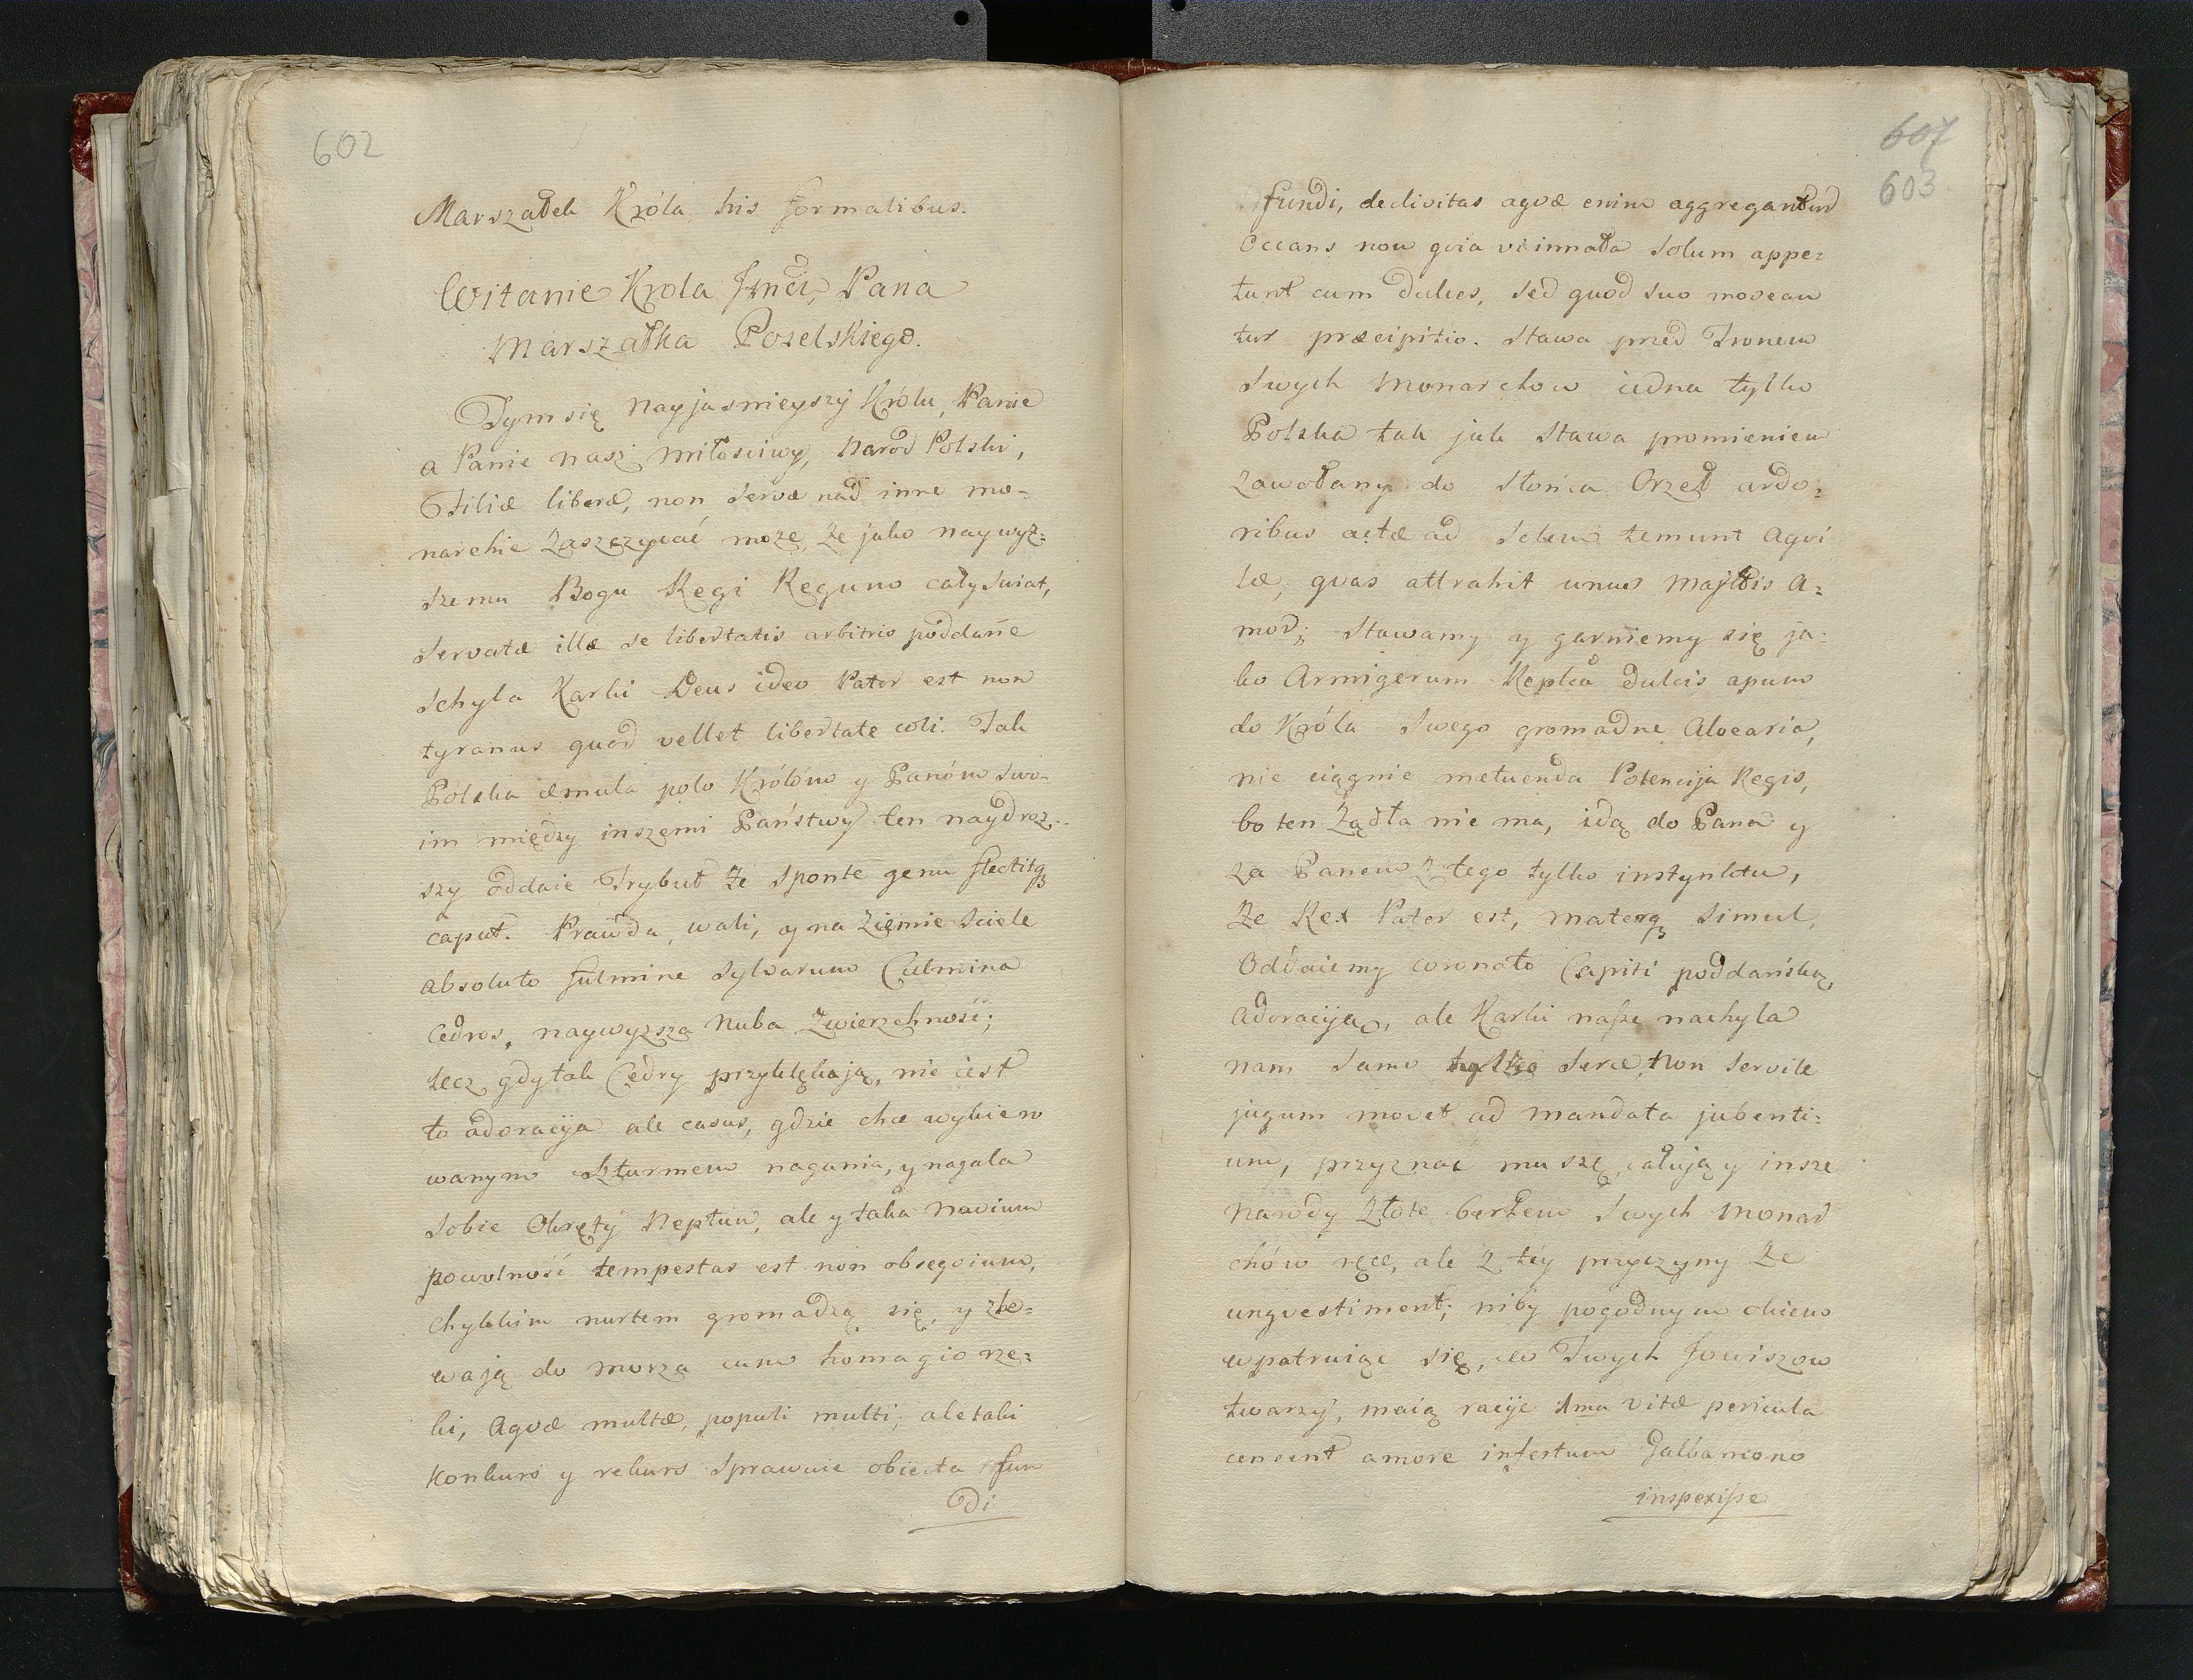 602
Marszałek Króla his formalibus.
Witanie Krola Jmći Pana
Marszałka Poselskiego.
Tym się Nayjasnieyszy Królu, Panie
a Panie nasz miłosciwy, Narod Polski,
Filiæ liberæ, non servæ nad inne mo-
narchie zaszczycać może, że jako naywyż:
szemu Bogu Regi Regum cały swiat,
servatæ illæ se libertatis arbitrio poddane
schyla Karki Deus ideo Pater est non
tyranus quod vellet libertate coli. Tak
Polska æmula polo Królów y Panów swo-
im między inszemi Państwy ten naydroż-
szy oddaie Trybut że sponte genu flectitq3
caput. Prawda, wali, y na Ziemie sciele
absoluto fulmine sylvarum Culmina
Cedros, naywyzsza Nuba Zwierzchność;
lecz gdy tak Cedry przyklękają, nie iest
to adoracija ale casus, gdzie chce
wanym Szturmem nagania, y nagala
sobie Okręty Neptun, ale y taka navium
powolność tempestas est non obseqvium,
chybkim nurtem gromadzą się, y zle=
wają do morza cum homagio rze=
ki, Aqvæ multæ, populi multi; ale taki
Konkurs y rekurs sprawuie obiecta fun
di
607
603
fundi, declivitas aqvæ enim aggregantur
Occans non qvia vi innata solum appe=
tunt eum dulces, sed quod suo movean
tur præcipitio. Stawa przed Tronem
swych Monarchow iedna tylko
Polska tak jak stawa promieniem
zawołany do słońca Orzeł ardo=
ribus actæ ad Solem temunt Aqvi
læ, qvas attrahit unus Majttis A=
mor; Stawamy y garniemy się ja=
ko Armigerum Replca dulcis apum
do Króla swego gromadne Alvearia,
nie ciągnie metuenda Potencija Regis,
bo ten Żądła nie ma, idą do Pana y
za Panem z tego tylko instynktu,
że Rex Pater est, materq3 simul,
Oddaiemy coronato Capiti poddańską,
Adoraciją, ale Karki nasze nachyla
nam samo tylko serce, Non servile
jugum movet ad mandata jubenti=
um, przyznać muszę, całują y insze
Narody złote berłem swych Monar
chów ręce, ale z tey przyczyny że
ungvestiment; niby pogodnym okiem
wpatruiąc się, w Twych Jowiszow
twarzy, maią racije Ama vitæ pericula
censent amore infestum Galbam cono
inspexisse